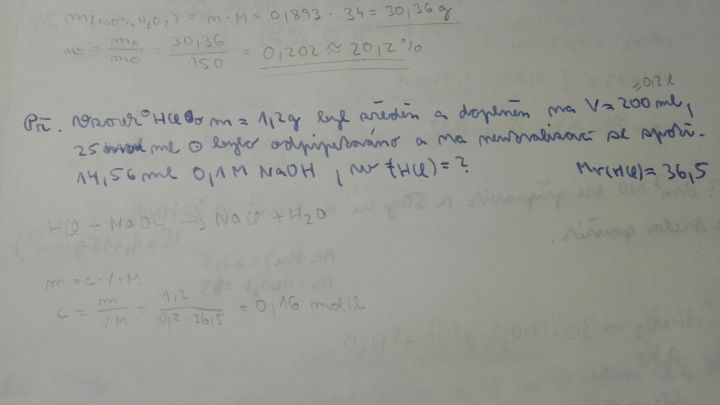 m(100% H2O2) = n · M = 0,893 · 34 = 30,36 g
w = m1/m0 = 30,36/150 = 0,202 ≈ 20,2 %
= 0,2 l
Př. Vzorek HCl o m = 1,2g byl zředěn a doplněn na V = 200 ml,
25 ml bylo odpipetováno a na neutralizaci se spotř.
14,56 ml 0,1M NaOH, w (HCl) = ? Mr(HCl) = 36,5
HCl + NaOH → NaCl + H2O
m = c · V · M
c = m/V·M = 1,2/0,2·36,5 = 0,16 mol/l